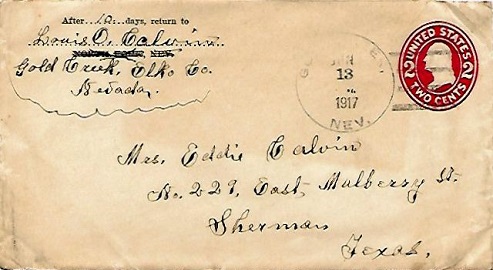 After 10 days, return to
Louis O. Calvin
NORTH FORK, NEV.
Gold Creek, Elko Co.
Nevada.
13
1917
NEV.
UNITED STATES
2 2
TWO CENTS
Mrs. Eddie Calvin
No. 229, East Mulberry St.
Sherman
Texas.